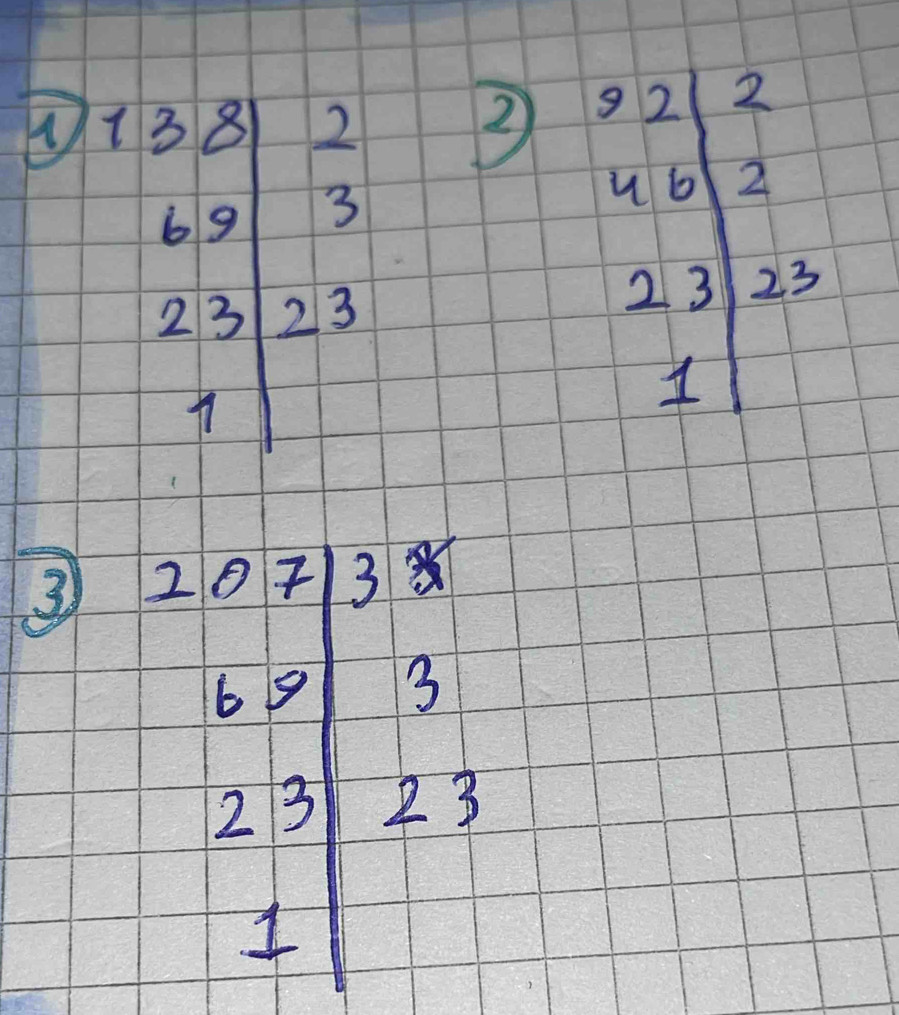 1) 138 | 2
69 | 3
23 | 23
1 |
2) 92 | 2
46 | 2
23 | 23
1 |
3) 207 | 3
69 | 3
23 | 23
1 |